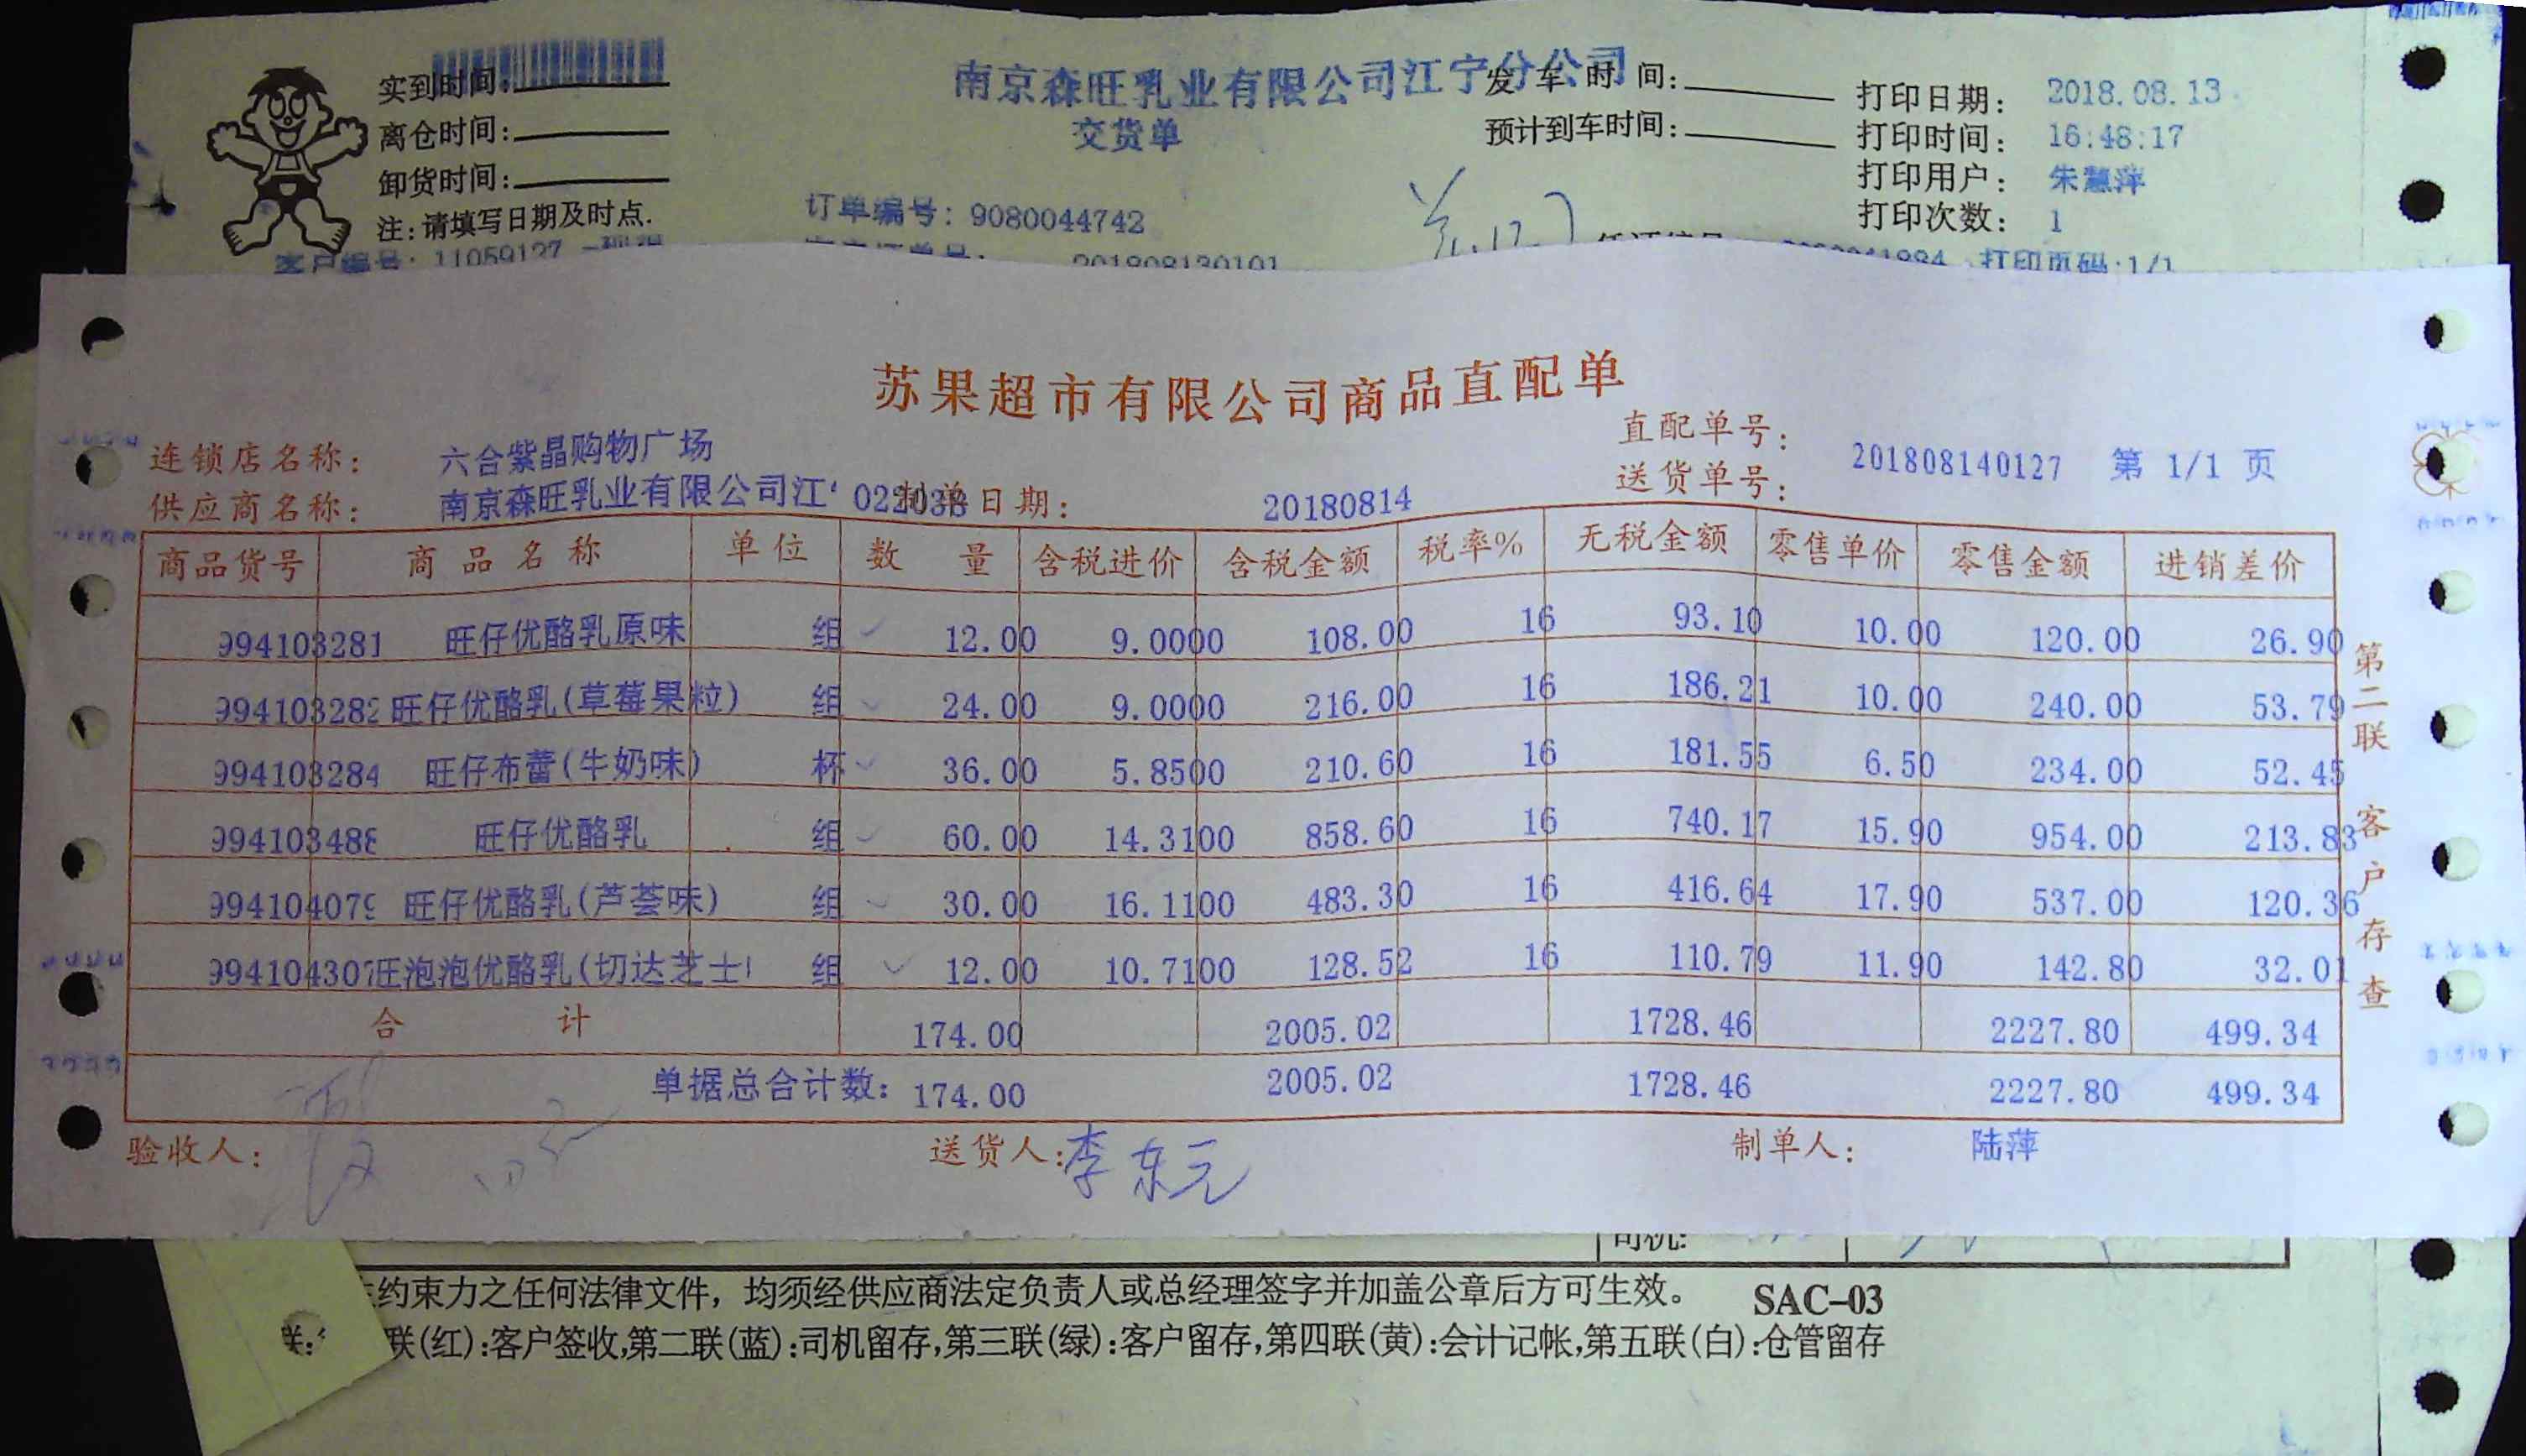 实到时间:
离仓时间:
卸货时间:
注:请填写日期及时点.
南京森旺乳业有限公司江宁分公司
交货单
发车时间:
预计到车时间:
打印日期: 2018.08.13
打印时间: 16:48:17
打印用户: 朱慧萍
打印次数: 1
订单编号: 9080044742
客户编号: 11059127
201808130101
打印页码:1/1
苏果超市有限公司商品直配单
连锁店名称: 六合紫晶购物广场
直配单号:
送货单号:
201808140127 第 1/1 页
供应商名称: 南京森旺乳业有限公司江
制单日期: 20180814
商品货号 商品名称 单位 数量 含税进价 含税金额 税率% 无税金额 零售单价 零售金额 进销差价
994103281 旺仔优酪乳原味 组 12.00 9.0000 108.00 16 93.10 10.00 120.00 26.90
994103282 旺仔优酪乳(草莓果粒) 组 24.00 9.0000 216.00 16 186.21 10.00 240.00 53.79
994103284 旺仔布蕾(牛奶味) 杯 36.00 5.8500 210.60 16 181.55 6.50 234.00 52.45
994103488 旺仔优酪乳 组 60.00 14.3100 858.60 16 740.17 15.90 954.00 213.83
994104079 旺仔优酪乳(芦荟味) 组 30.00 16.1100 483.30 16 416.64 17.90 537.00 120.36
994104307 旺泡泡优酪乳(切达芝士 组 12.00 10.7100 128.52 16 110.79 11.90 142.80 32.01
合计 174.00 2005.02 1728.46 2227.80 499.34
单据总合计数: 174.00 2005.02 1728.46 2227.80 499.34
第二联 客户存查
验收人:
送货人:李东元
制单人: 陆萍
司机:
约束力之任何法律文件，均须经供应商法定负责人或总经理签字并加盖公章后方可生效。 SAC-03
联(红):客户签收,第二联(蓝):司机留存,第三联(绿):客户留存,第四联(黄):会计记帐,第五联(白):仓管留存